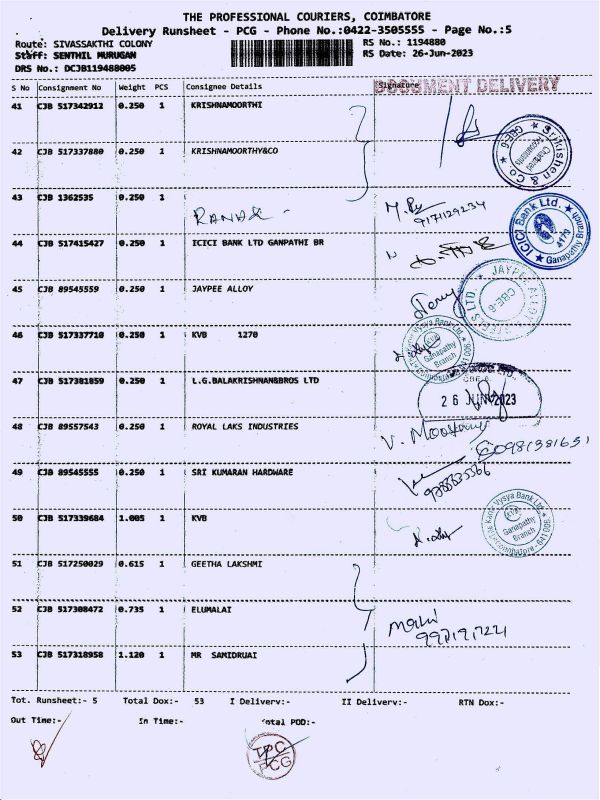 THE PROFESSIONAL COURIERS, COIMBATORE
Delivery Runsheet - PCG - Phone No.:0422-3505555 - Page No.:5
Route: SIVASSAKTHI COLONY RS No.: 1194880
Staff: SENTHIL MURUGAN RS Date: 26-Jun-2023
DRS No.: DCJB119488005
DOCUMENT DELIVERY
S No Consignment No Weight PCS Consignee Details Signature
41 CJB 517342912 0.250 1 KRISHNAMOORTHI
42 CJB 517337880 0.250 1 KRISHNAMOORTHY&CO
Srikishen & Co. CBE-6
43 CJB 1362535 0.250 1
9171129234
ICICI Bank Ltd. Ganapathy Branch
44 CJB 517415427 0.250 1 ICICI BANK LTD GANPATHI BR
45 CJB 89545559 0.250 1 JAYPEE ALLOY
JAYPEE ALLOY CBE-6
46 CJB 517337710 0.250 1 KVB 1270
Vysya Bank Ltd. KVB Ganapathy Branch
47 CJB 517381859 0.250 1 L.G.BALAKRISHNAN&BROS LTD
CBE-6.
26 JUN 2023
48 CJB 89557543 0.250 1 ROYAL LAKS INDUSTRIES
49 CJB 89545555 0.250 1 SRI KUMARAN HARDWARE
50 CJB 517339684 1.005 1 KVB
The Karur Vysya Bank Ltd. KVB Ganapathy Branch Coimbatore-641006
51 CJB 517250029 0.615 1 GEETHA LAKSHMI
52 CJB 517308472 0.735 1 ELUMALAI
53 CJB 517318958 1.120 1 MR SAMIDRUAI
Tot. Runsheet:- 5 Total Dox:- 53 I Delivery:- II Delivery:- RTN Dox:-
Out Time:- In Time:- Total POD:-
TPC
PCG